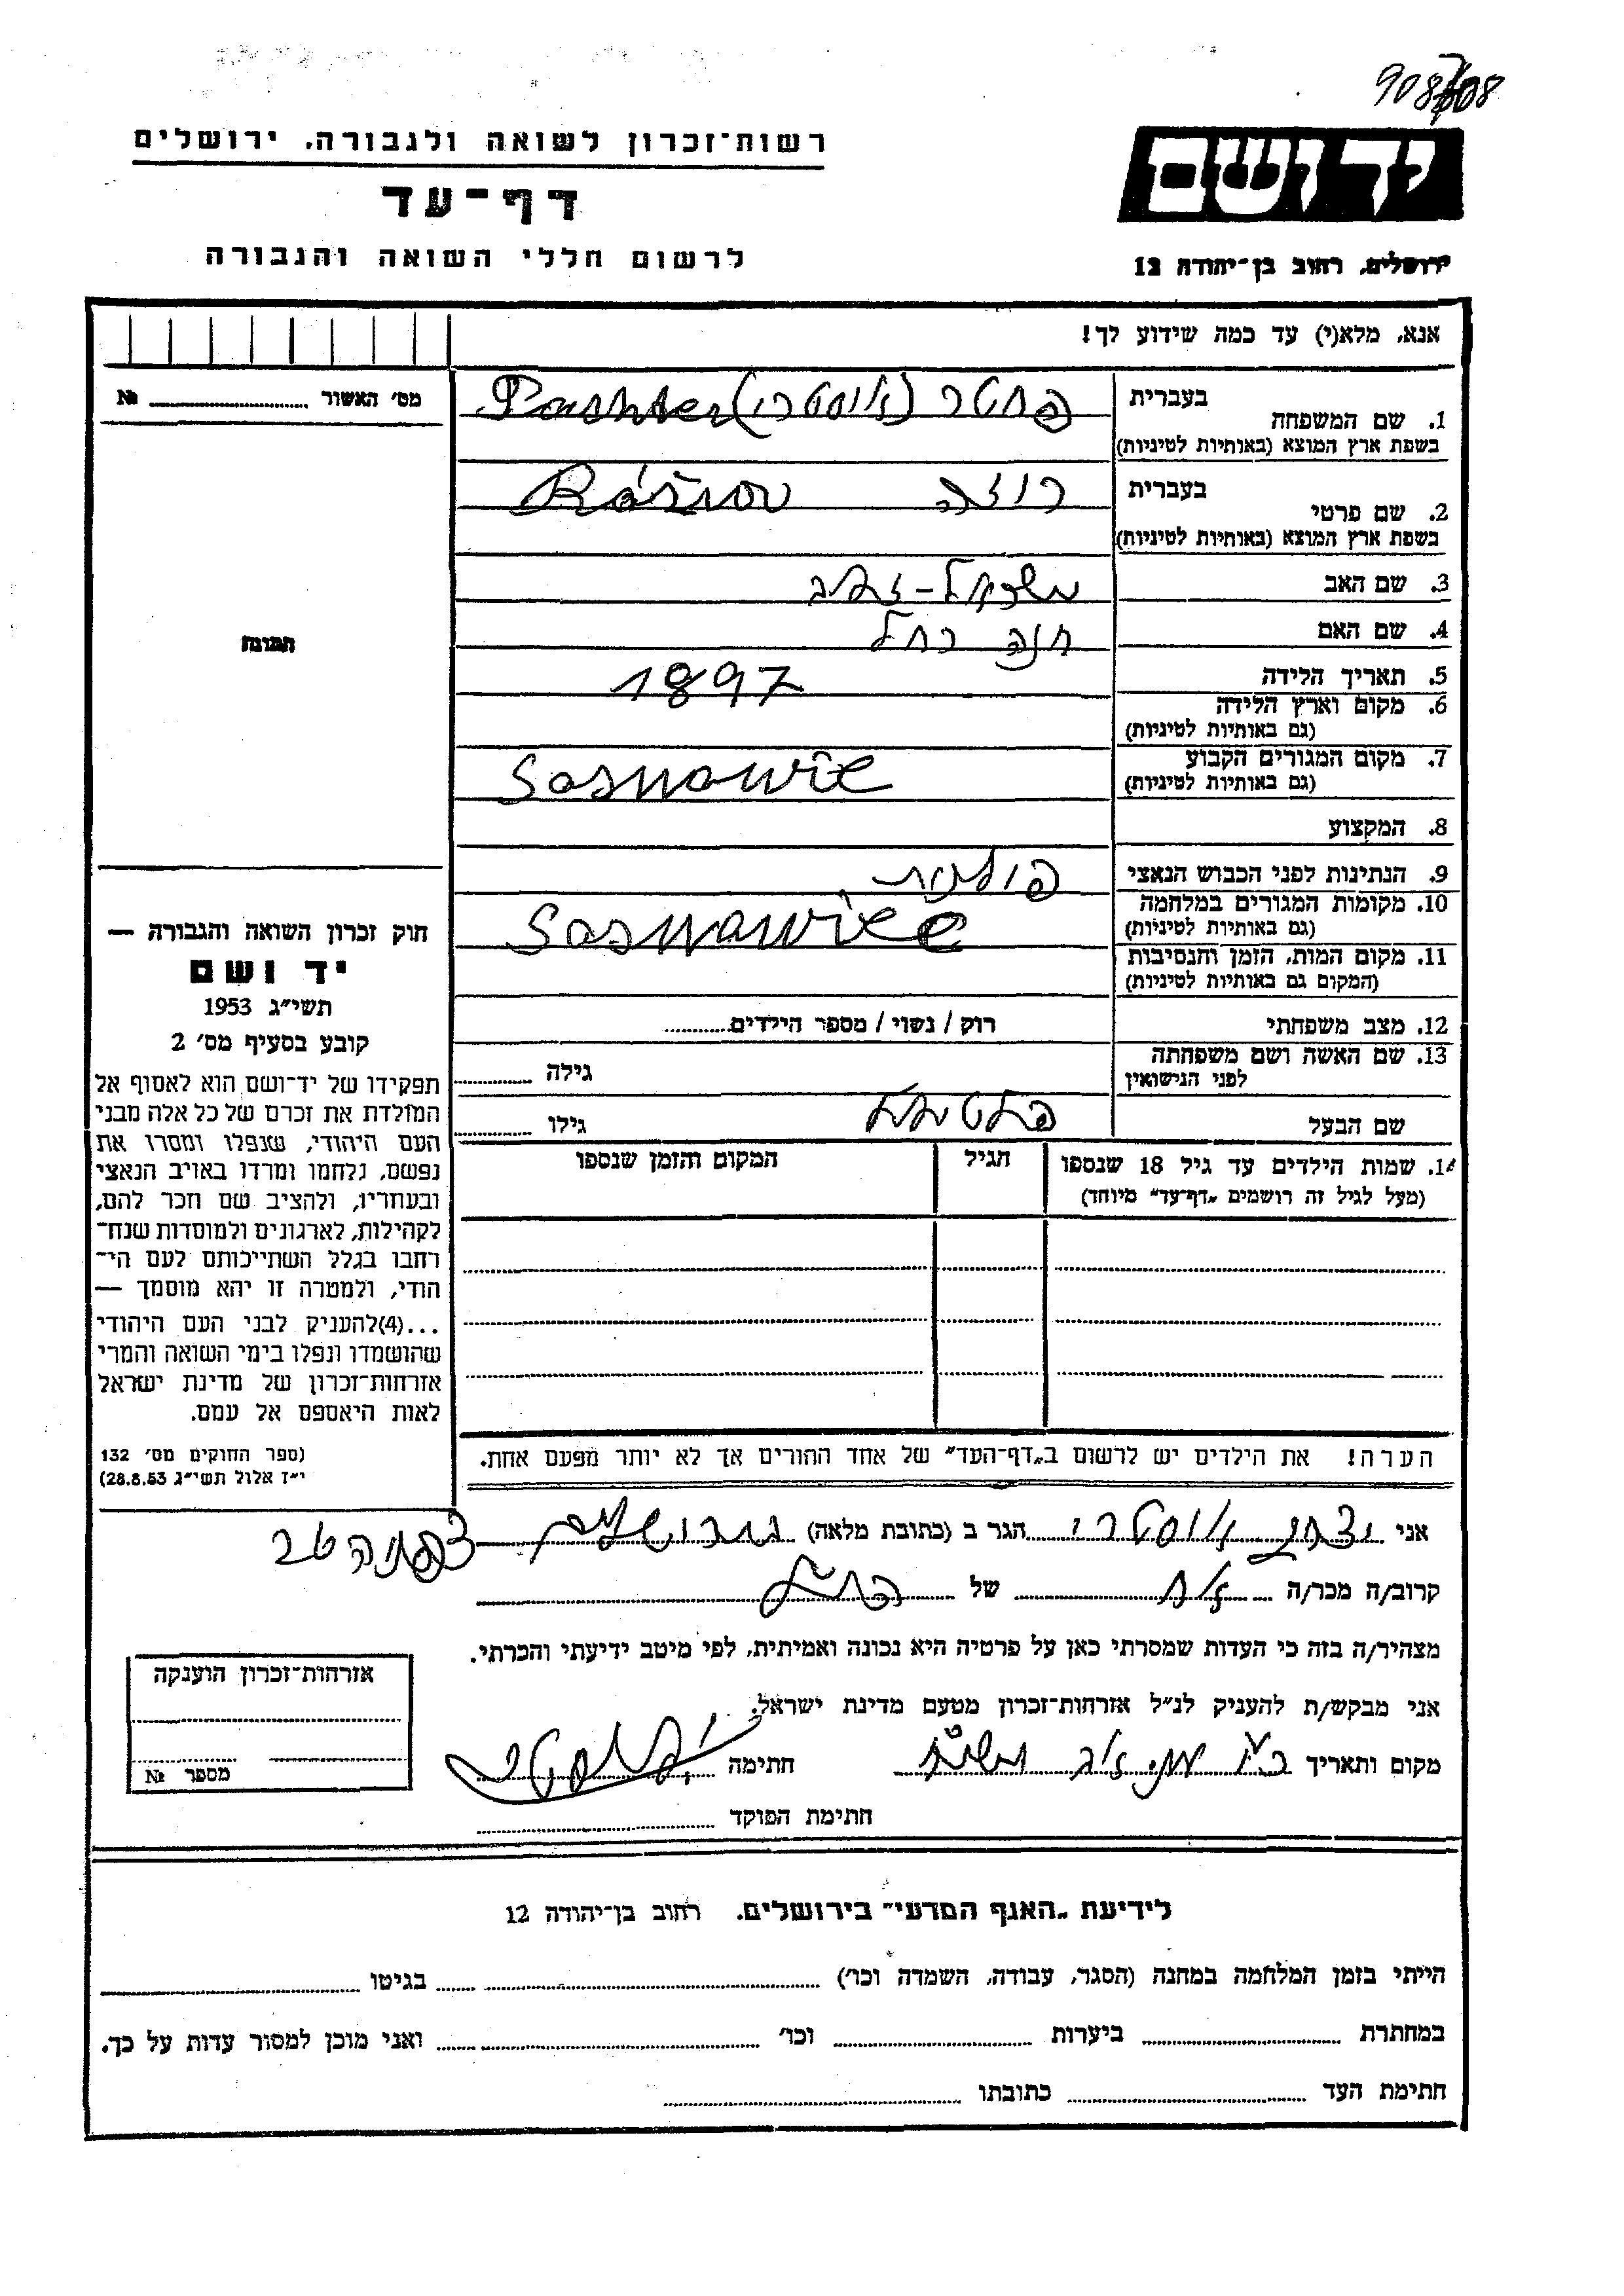 רשות־זכרון לשואה ולגבורה, ירושלים
דף־עד
לרשום חללי השואה והגבורה
יד ושם
ירושלים, רחוב בן־יהודה 12
אנא, מלא(י) עד כמה שידוע לך!
מס׳ האשור № 
1. שם המשפחה בעברית פחטר (אוסטרי) Pachter
בשפת ארץ המוצא (באותיות לטיניות)
2. שם פרטי בעברית רוזה
בשפת ארץ המוצא (באותיות לטיניות)
3. שם האב
4. שם האם חנה רחל
5. תאריך הלידה 1897
6. מקום וארץ הלידה
(גם באותיות לטיניות)
7. מקום המגורים הקבוע Sosnowie
(גם באותיות לטיניות)
8. המקצוע
9. הנתינות לפני הכבוש הנאצי פולנית
10. מקומות המגורים במלחמה Sosnowiec
(גם באותיות לטיניות)
11. מקום המות, הזמן והנסיבות
(המקום גם באותיות לטיניות)
12. מצב משפחתי רוק / נשוי / מספר הילדים
13. שם האשה ושם משפחתה
לפני הנישואין גילה
שם הבעל גילו
14. שמות הילדים עד גיל 18 שנספו הגיל המקום והזמן שנספו
(מעל לגיל זה רושמים „דף־עד״ מיוחד)
הערה! את הילדים יש לרשום ב„דף־העד״ של אחד ההורים אך לא יותר מפעם אחת.
תמונה
חוק זכרון השואה והגבורה —
יד ושם
תשי״ג 1953
קובע בסעיף מס׳ 2
תפקידו של יד־ושם הוא לאסוף אל
המולדת את זכרם של כל אלה מבני
העם היהודי, שנפלו ומסרו את
נפשם, נלחמו ומרדו באויב הנאצי
ובעוזריו, ולהציב שם וזכר להם,
לקהילות, לארגונים ולמוסדות שנח־
רבו בגלל השתייכותם לעם הי־
הודי, ולמטרה זו יהא מוסמך —
...(4)להעניק לבני העם היהודי
שהושמדו ונפלו בימי השואה והמרי
אזרחות־זכרון של מדינת ישראל
לאות היאספם אל עמם.
(ספר החוקים מס׳ 132
י״ז אלול תשי״ג 28.8.53)
אני יצחק אוסטרי הגר ב (כתובת מלאה) ירושלים
קרוב/ה מכר/ה אח של
מצהיר/ה בזה כי העדות שמסרתי כאן על פרטיה היא נכונה ואמיתית, לפי מיטב ידיעתי והכרתי.
אני מבקש/ת להעניק לנ״ל אזרחות־זכרון מטעם מדינת ישראל.
מקום ותאריך חתימה
חתימת הפוקד
אזרחות־זכרון הוענקה
מספר №
לידיעת „האגף המדעי״ בירושלים, רחוב בן־יהודה 12
הייתי בזמן המלחמה במחנה (הסגר, עבודה, השמדה וכו׳) בגיטו
במחתרת ביערות וכו׳ ואני מוכן למסור עדות על כך.
חתימת העד כתובתו